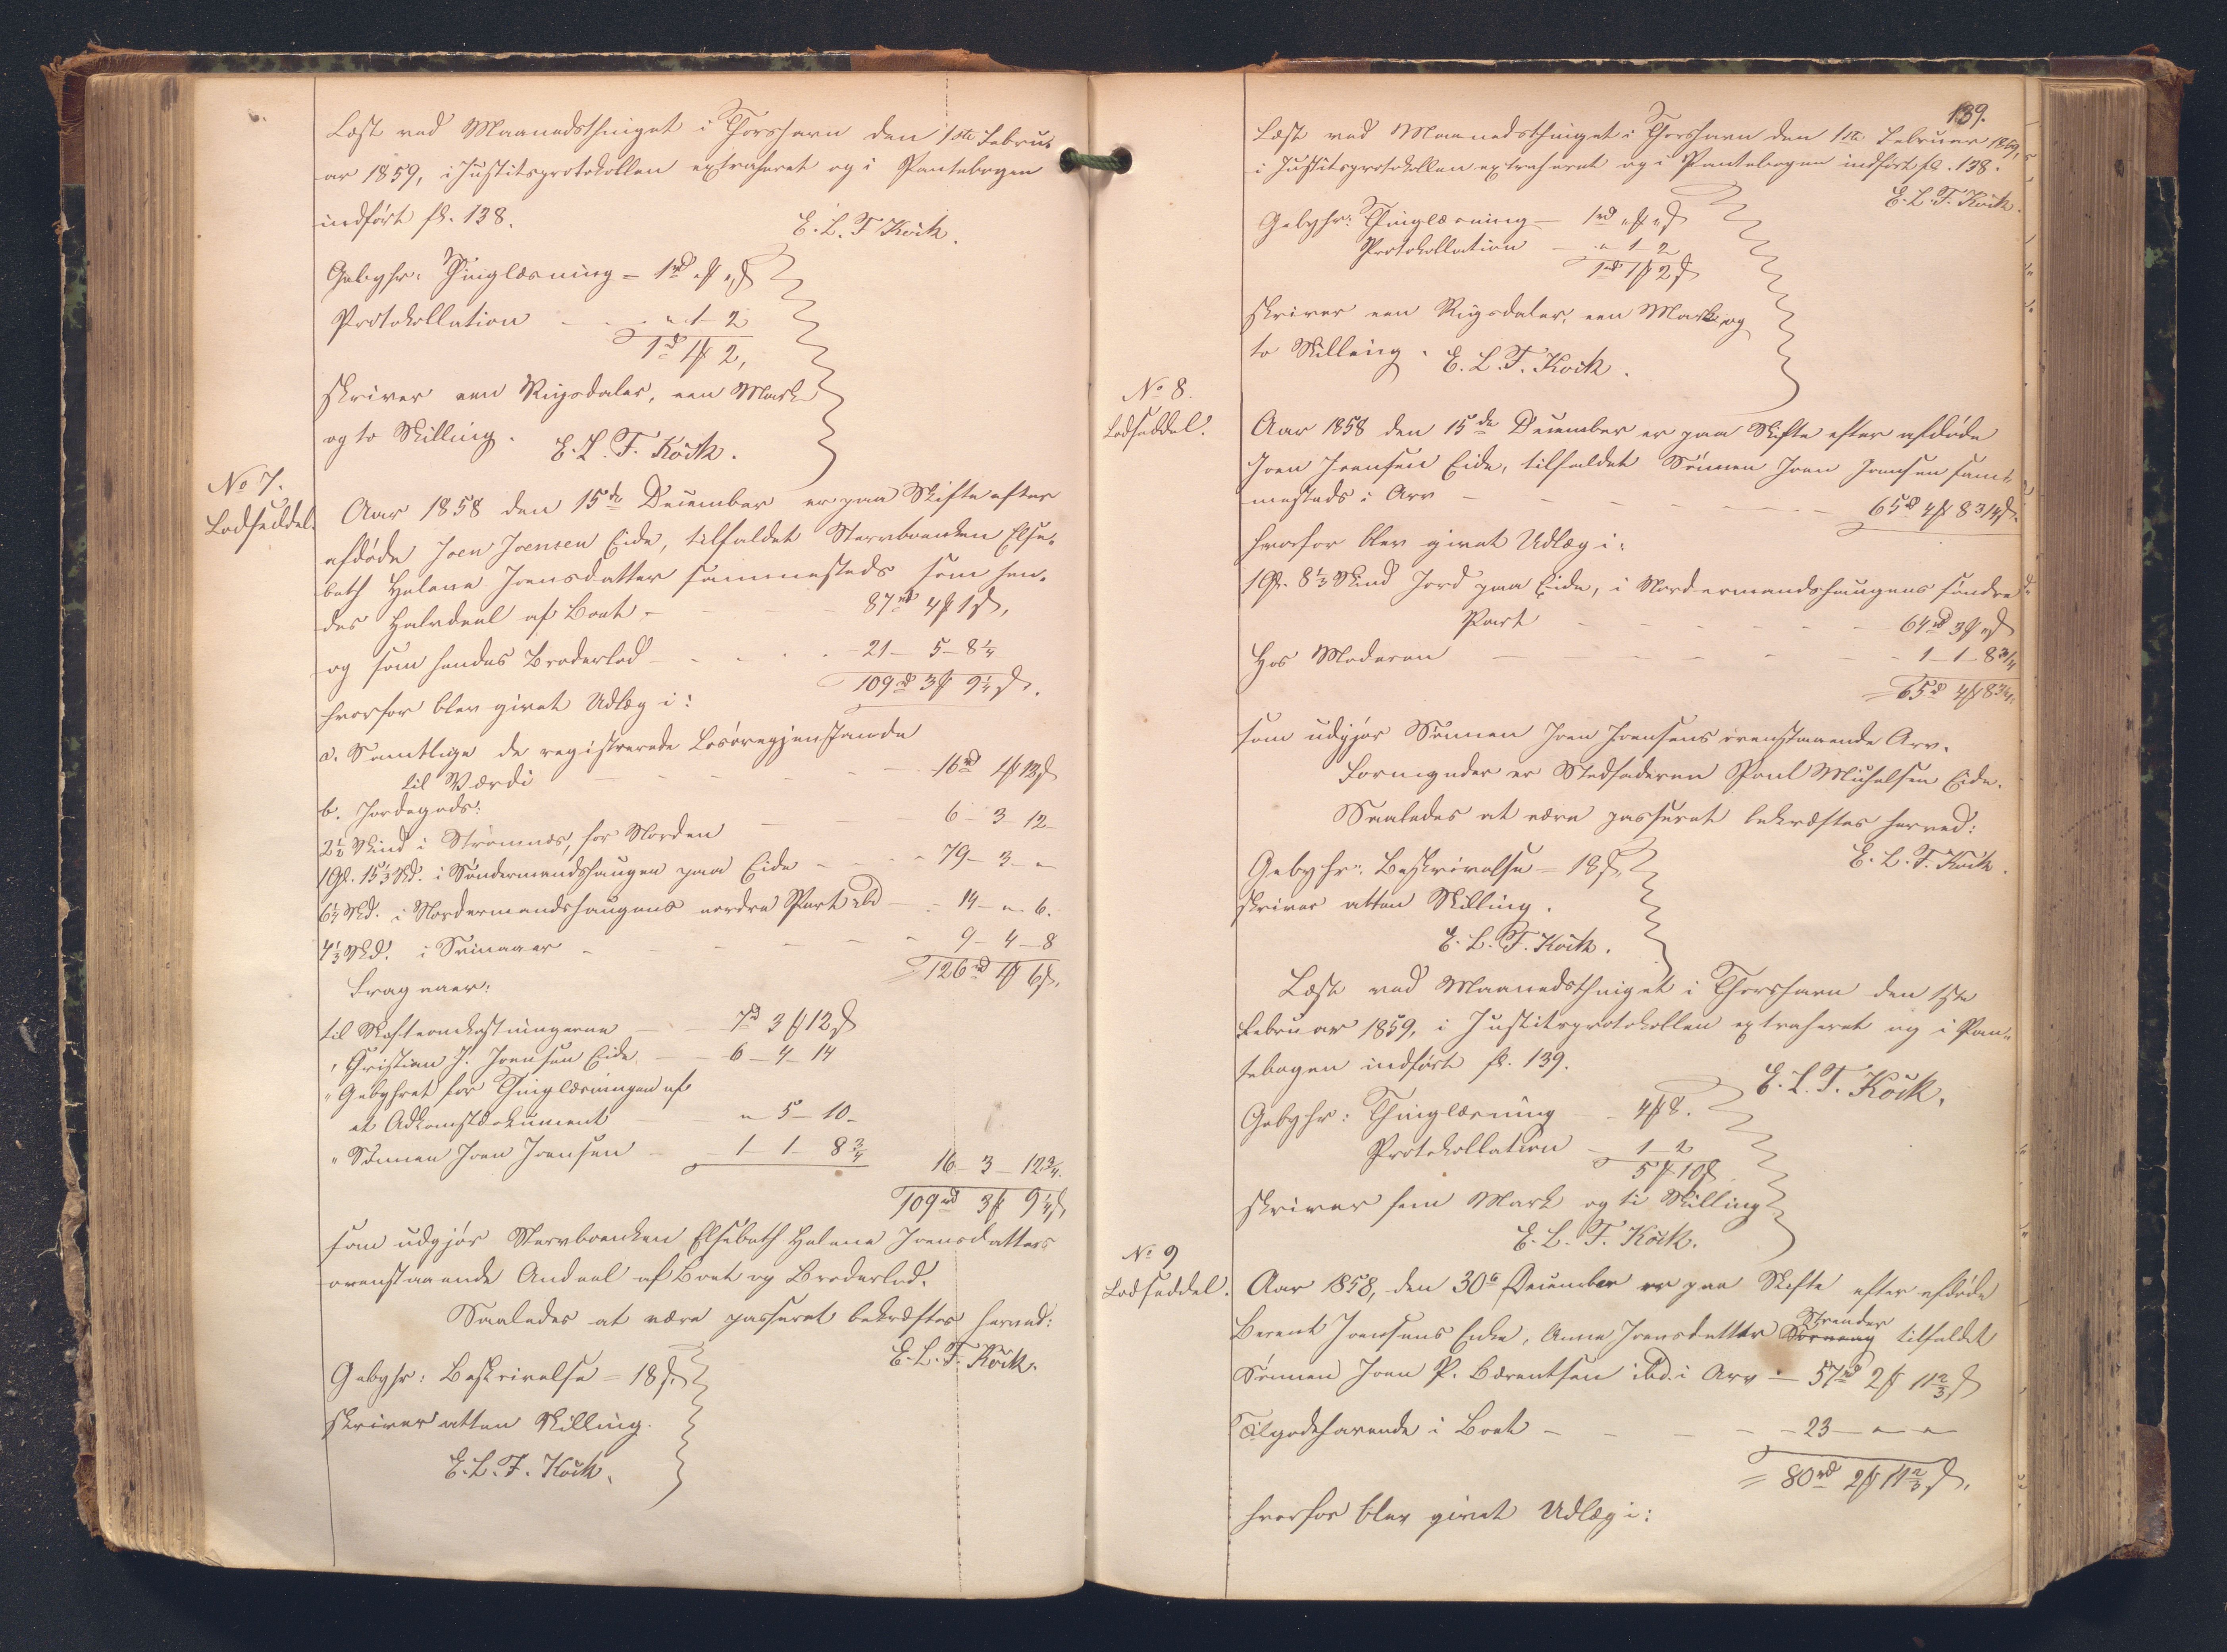 Læst ved Maanedsthinget i Thorshavn den 1ste Febru-
ar 1859, i Justitsprotokollen extraheret og i Pantebogen
indført fl. 138.
E. L. T. Köck.
Gebyhr: Thinglæsning = 1rd " ß "
Protokollation - - " 1 - 2
1rd 1 2,
skriver een Rigsdaler, een Mark
og to Skilling. E. L. T. Köck.
No 7.
Lodseddel.
Aar 1858 den 15de December er paa Skifte efter
afdøde Joen Joensen Eide, tilfaldet Stervboenken Else-
beth Helene Joensdatter sammesteds som hen-
des Halvdeel af Boet - - - 87rd 4 1 ß,
og som hendes Broderlod - - - 21 - 5 - 8 1/4
109rd 3 9 1/4 ß.
hvorfor blev givet Udlæg i:
a. Samtlige de registrerede Løsøregjenstande
til Værdi - - - 16rd 1 12 ß
b. Jordegods:
2 1/2 Skind i Strømnæs, for Norden - - 6 - 3 - 12
1 Gl. 15 1/3 Skd. i Søndermandshaugen paa Eide - - 79 - 3 - "
6 1/4 Skd. i Nordermandshaugens nordre Part ibd - 14 - " - 6.
4 1/3 Skd. i Svinaaer - - - 9 - 4 - 8
= 126rd 1 6 ß.
Fragaaer:
til Skifteomkostningerne - - 7rd 3 12 ß
" Christian J. Joensen Eide - - 6 - 4 - 14
" Gebyhret for Thinglæsningen af
et Adkomstdokument - - " 5 - 10
" Sønnen Joen Joensen - - 1 - 1 - 8 3/4
16 - 3 - 12 3/4.
109rd 3 9 1/4 ß
som udgjør Stervboenken Elsebeth Helene Joensdatters
ovenstaaende Andeel af Boet og Broderlod.
Saaledes at være passeret bekræftes herved:
E. L. T. Köck.
Gebyhr: Beskrivelse = 18 ß,
skriver atten Skilling.
E. L. T. Köck.
139.
Læst ved Maanedsthinget i Thorshavn den 1ste Februar 1859,
i Justitsprotokollen extraheret og i Pantebogen indført fl. 138.
E. L. T. Köck.
Gebyhr: Thinglæsning - 1rd " "
Protokollation - " 1 - 2
1rd 1 2 ß
skriver een Rigsdaler, een Mark og
to Skilling. E. L. T. Köck.
No 8.
Lodseddel.
Aar 1858 den 15de December er paa Skifte efter afdøde
Joen Joensen Eide, tilfaldet Sønnen Joen Joensen sam-
mesteds i Arv - - - 65rd 4 8 3/4 ß.
hvorfor blev givet Udlæg i:
1 Gl. 8 1/3 Skind Jord paa Eide, i Nordermandshaugens søndre
Part - - - 64rd 3 "
Hos Moderen - - - 1 - 1 - 8 3/4
= 65rd 4 8 3/4
som udgjør Sønnen Joen Joensens ovenstaaende Arv.
Formynder er Stedfaderen Poul Michelsen Eide.
Saaledes at være passeret bekræftes herved:
E. L. T. Köck.
Gebyhr: Beskrivelse = 18 ß,
skriver atten Skilling.
E. L. T. Köck.
Læst ved Maanedsthinget i Thorshavn den 1ste
Februar 1859, i Justitsprotokollen extraheret og i Pan-
tebogen indført fl. 139.
E. L. T. Köck.
Gebyhr: Thinglæsning - 4 8.
Protokollation - 1 - 2
5 10 ß
skriver fem Mark og ti Skilling
E. L. T. Köck.
No 9
Lodseddel.
Aar 1858, den 30te December er paa Skifte efter afdøde
Berent Joensens Enke, Anna Joensdatter Strender tilfaldet
Sønnen Joen P. Bærentsen ibd. i Arv - 57rd 2 11 2/3 ß
Tilgodehavende i Boet - - - 23 - " - "
= 80rd 2 11 2/3 ß.
hvorfor blev givet Udlæg i: